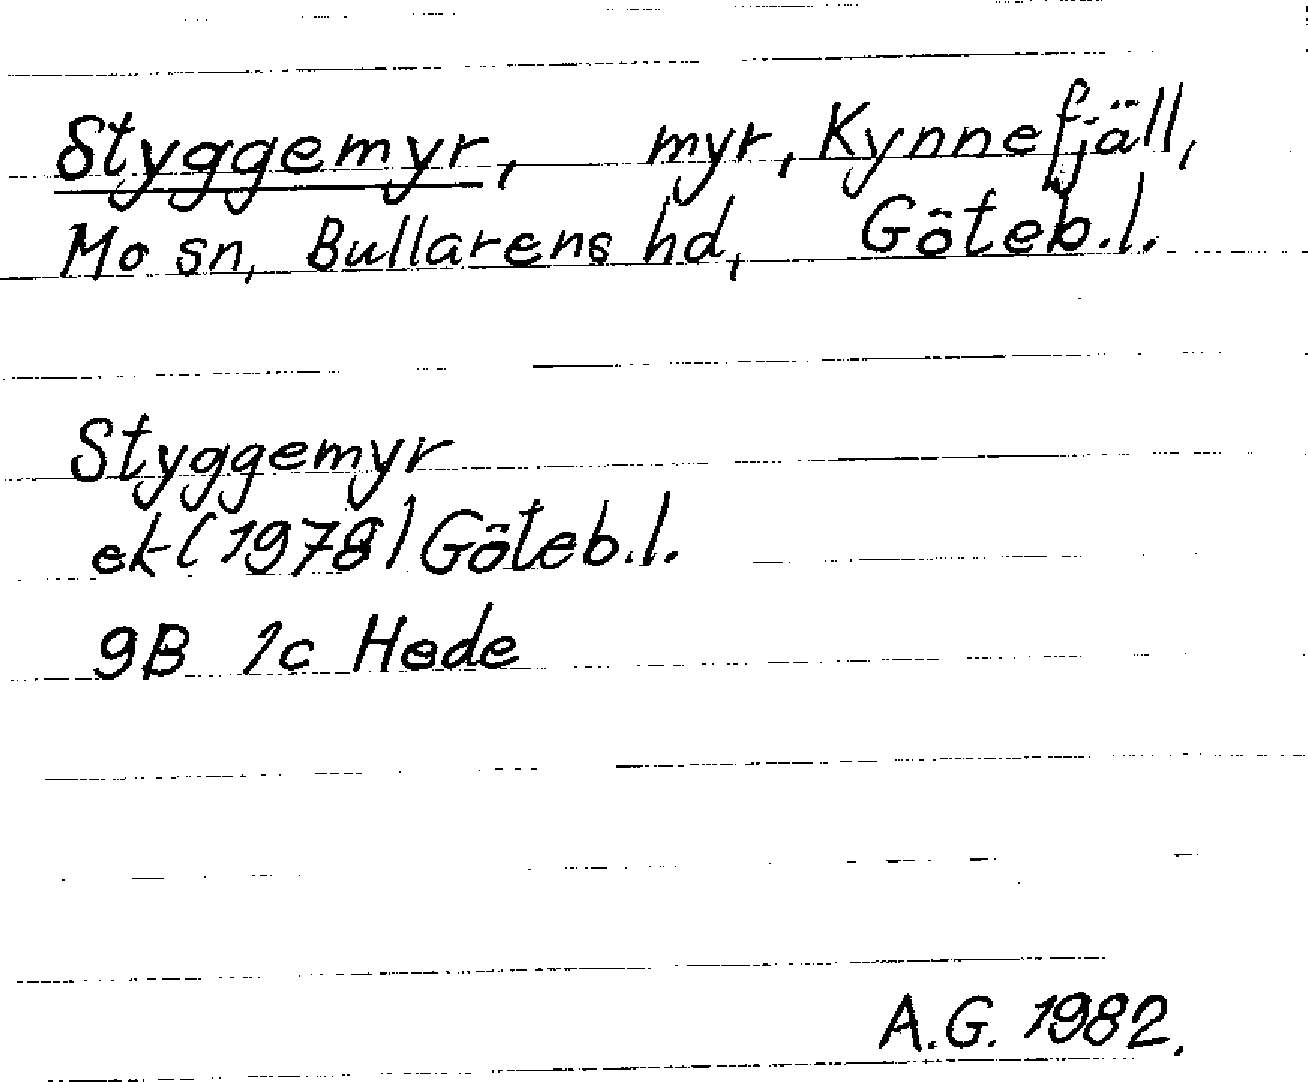 Styggemyr, myr, Kynnefjäll,
Mo sn, Bullarens hd, Göteb.l.
Styggemyr
ek (1978) Göteb.l.
9B 1c Hede
A.G. 1982.